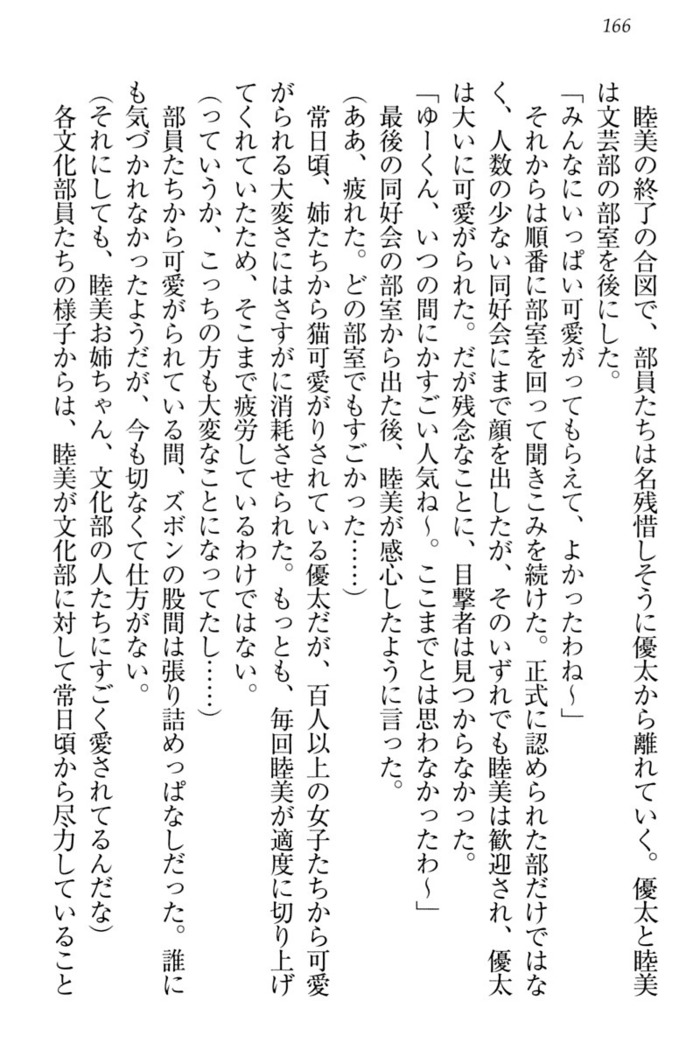 166
睦美の終了の合図で、部員たちは名残惜しそうに優太から離れていく。優太と睦美
は文芸部の部室を後にした。
「みんなにいっぱい可愛がってもらえて、よかったわね～」
それからは順番に部室を回って聞きこみを続けた。正式に認められた部だけではな
く、人数の少ない同好会にまで顔を出したが、そのいずれでも睦美は歓迎され、優太
は大いに可愛がられた。だが残念なことに、目撃者は見つからなかった。
「ゆーくん、いつの間にかすごい人気ね～。ここまでとは思わなかったわ～」
最後の同好会の部室から出た後、睦美が感心したように言った。
(ああ、疲れた。どの部室でもすごかった……)
常日頃、姉たちから猫可愛がりされている優太だが、百人以上の女子たちから可愛
がられる大変さにはさすがに消耗させられた。もっとも、毎回睦美が適度に切り上げ
てくれていたため、そこまで疲労しているわけではない。
(っていうか、こっちの方も大変なことになってたし……)
部員たちから可愛がられている間、ズボンの股間は張り詰めっぱなしだった。誰に
も気づかれなかったようだが、今も切なくて仕方がない。
(それにしても、睦美お姉ちゃん、文化部の人たちにすごく愛されてるんだな)
各文化部員たちの様子からは、睦美が文化部に対して常日頃から尽力していること